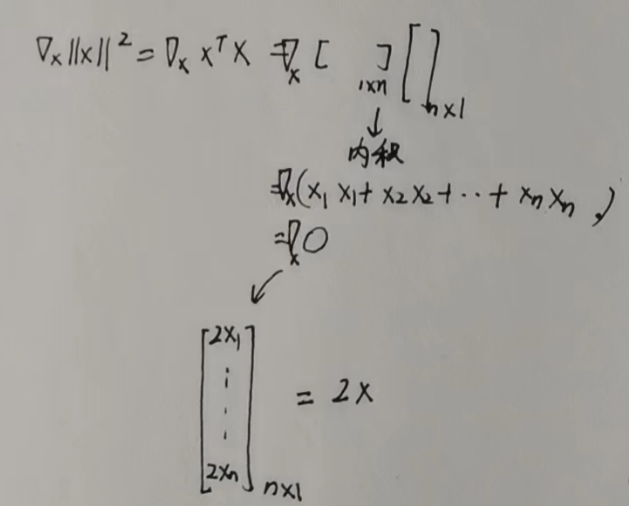 ∇ₓ‖x‖² = ∇ₓ xᵀx = ∇ₓ [ ]₁ₓₙ [ ]ₙₓ₁
↓
内积
= ∇ₓ(x₁x₁ + x₂x₂ + ‥ + xₙxₙ)
= ∇ₓ○
[2x₁
⋮
2xₙ]ₙₓ₁ = 2x